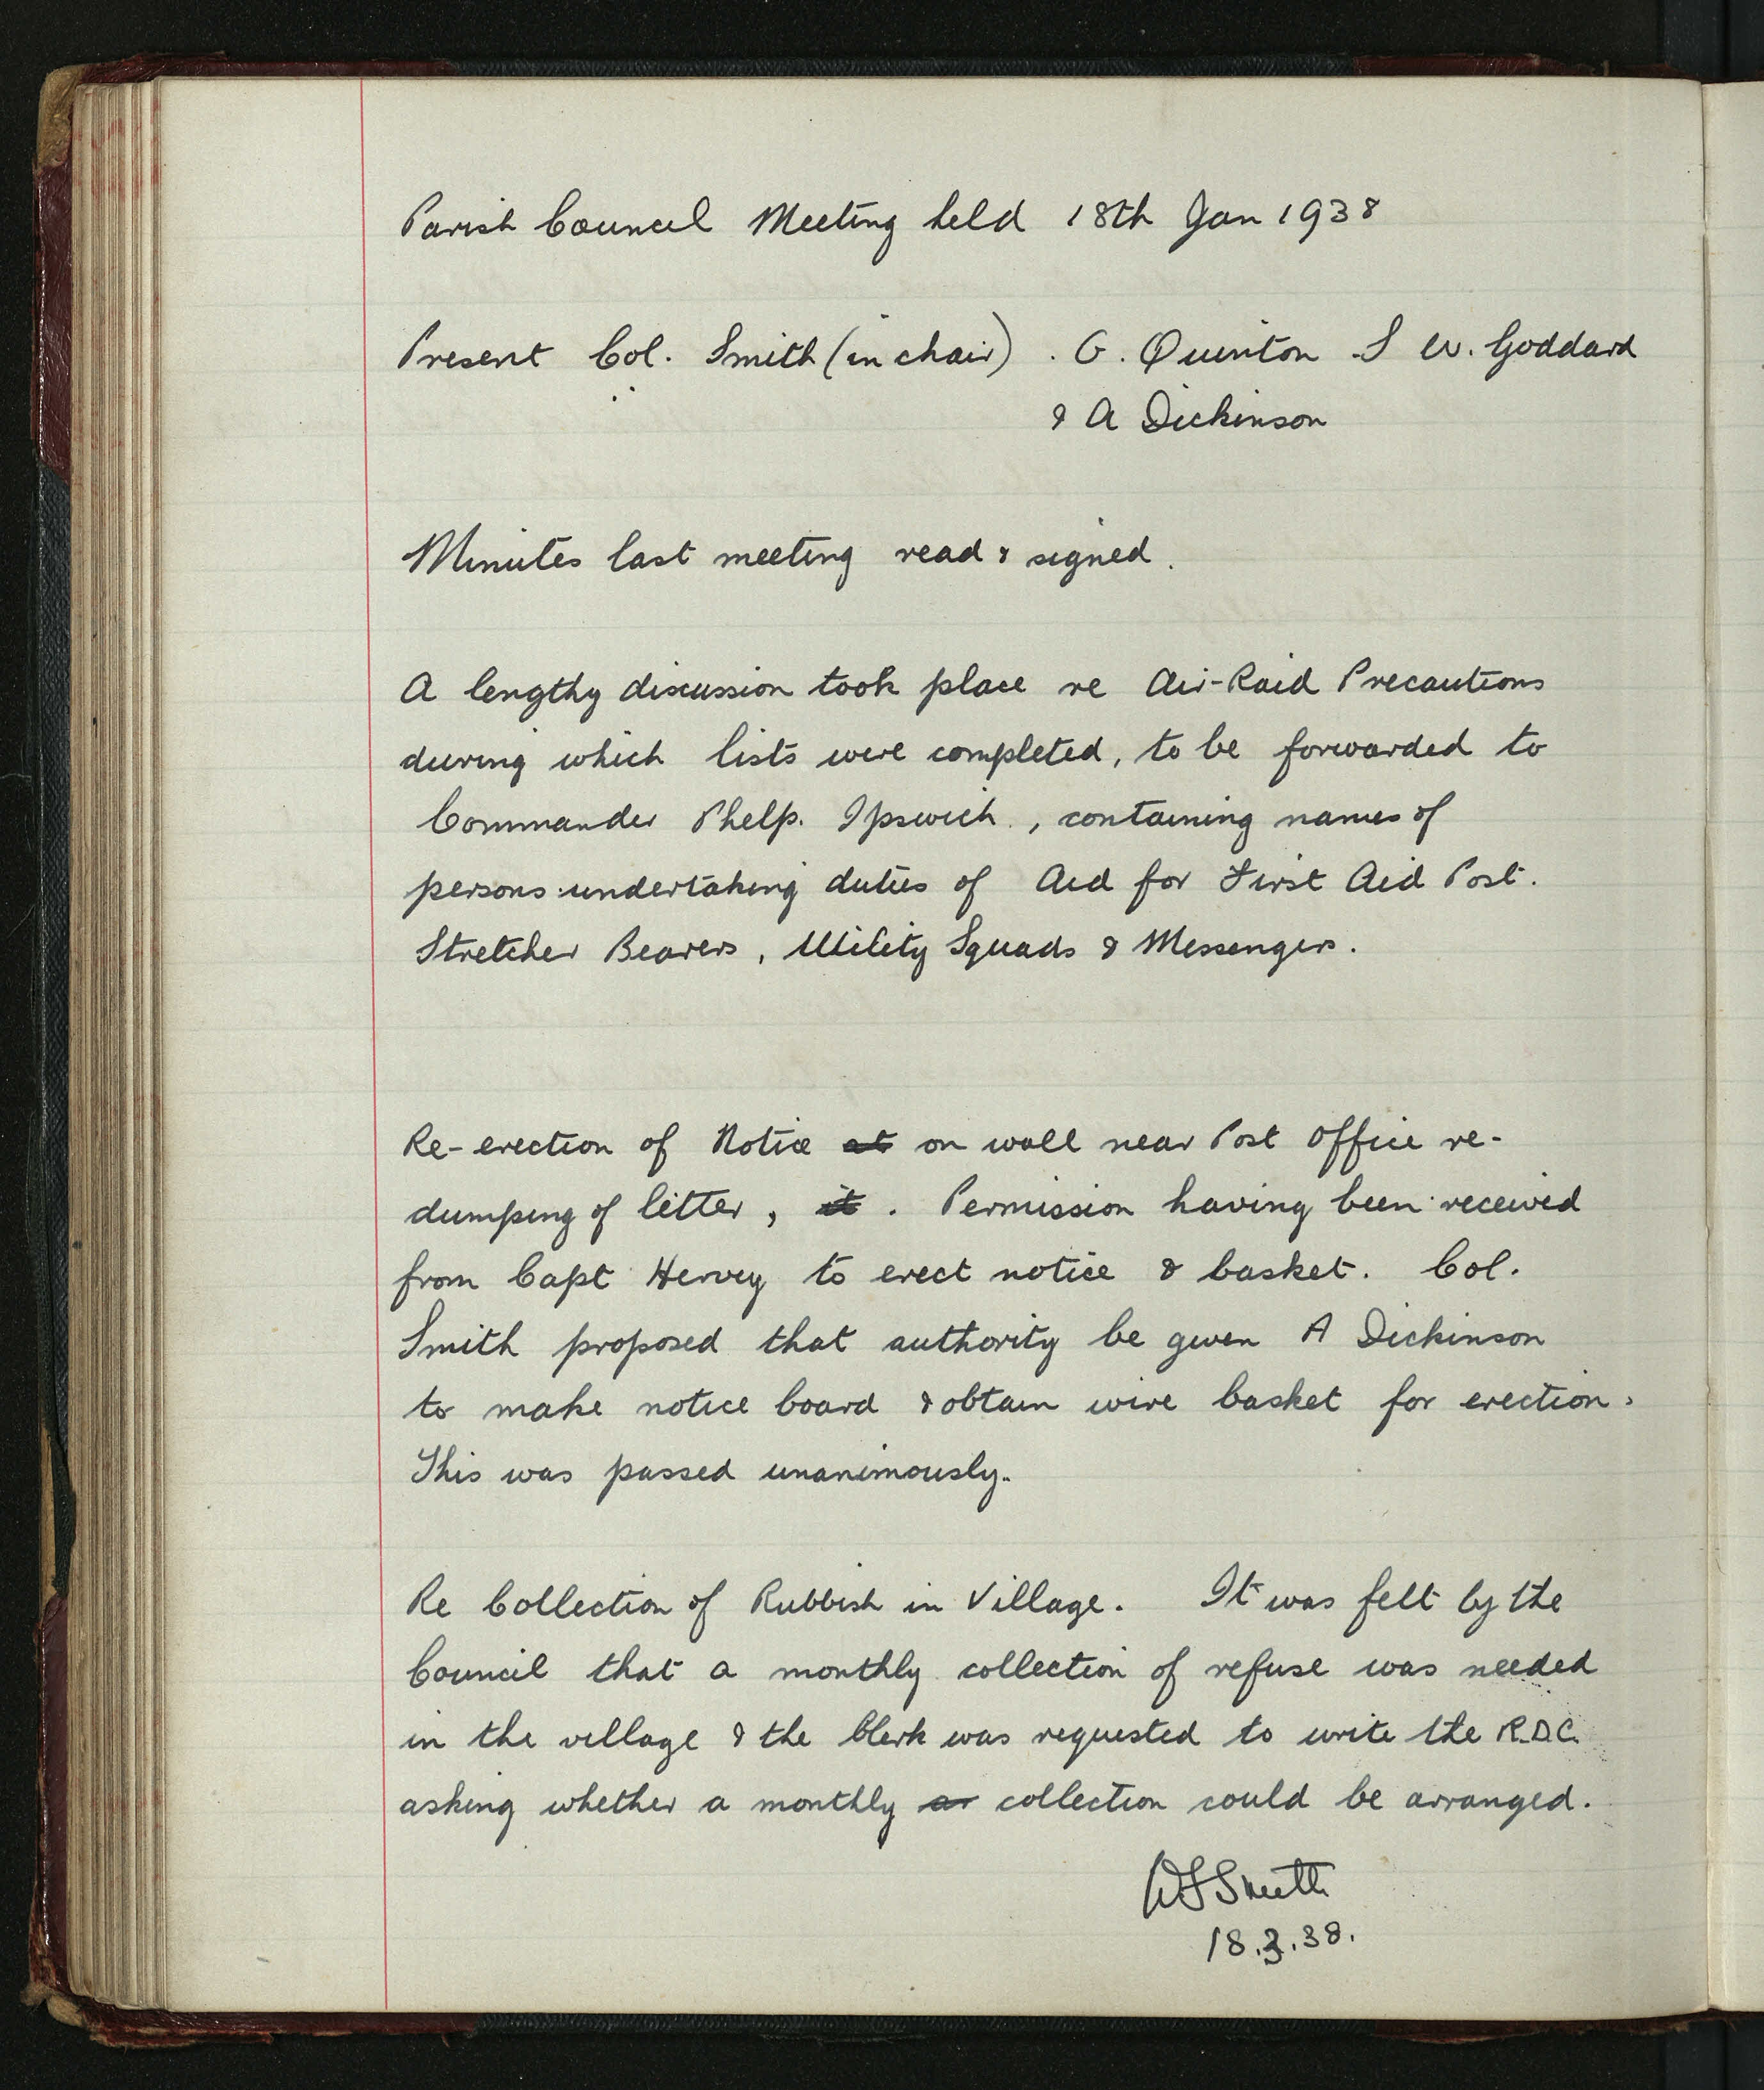 Parish Council Meeting held 18th Jan 1938
Present Col. Smith (in chair) . G. Quinton S W. Goddard
& A Dickinson
Minutes last meeting read & signed.
A lengthy discussion took place re Air-Raid Precautions
during which lists were completed, to be forwarded to
Commander Phelp. Ipswich., containing names of
persons undertaking duties of Aid for First Aid Post.
Stretcher Bearers, Utility Squads & Messengers.
Re-erection of Notice at on wall near Post Office re-
dumping of litter, it. Permission having been received
from Capt Hervey to erect notice & basket. Col.
Smith proposed that authority be given A Dickinson
to make notice board & obtain wire basket for erection.
This was passed unanimously.
Re Collection of Rubbish in Village. It was felt by the
Council that a monthly collection of refuse was needed
in the village & the Clerk was requested to write the R.D.C.
asking whether a monthly ar collection could be arranged.
Smith
18.3.38.